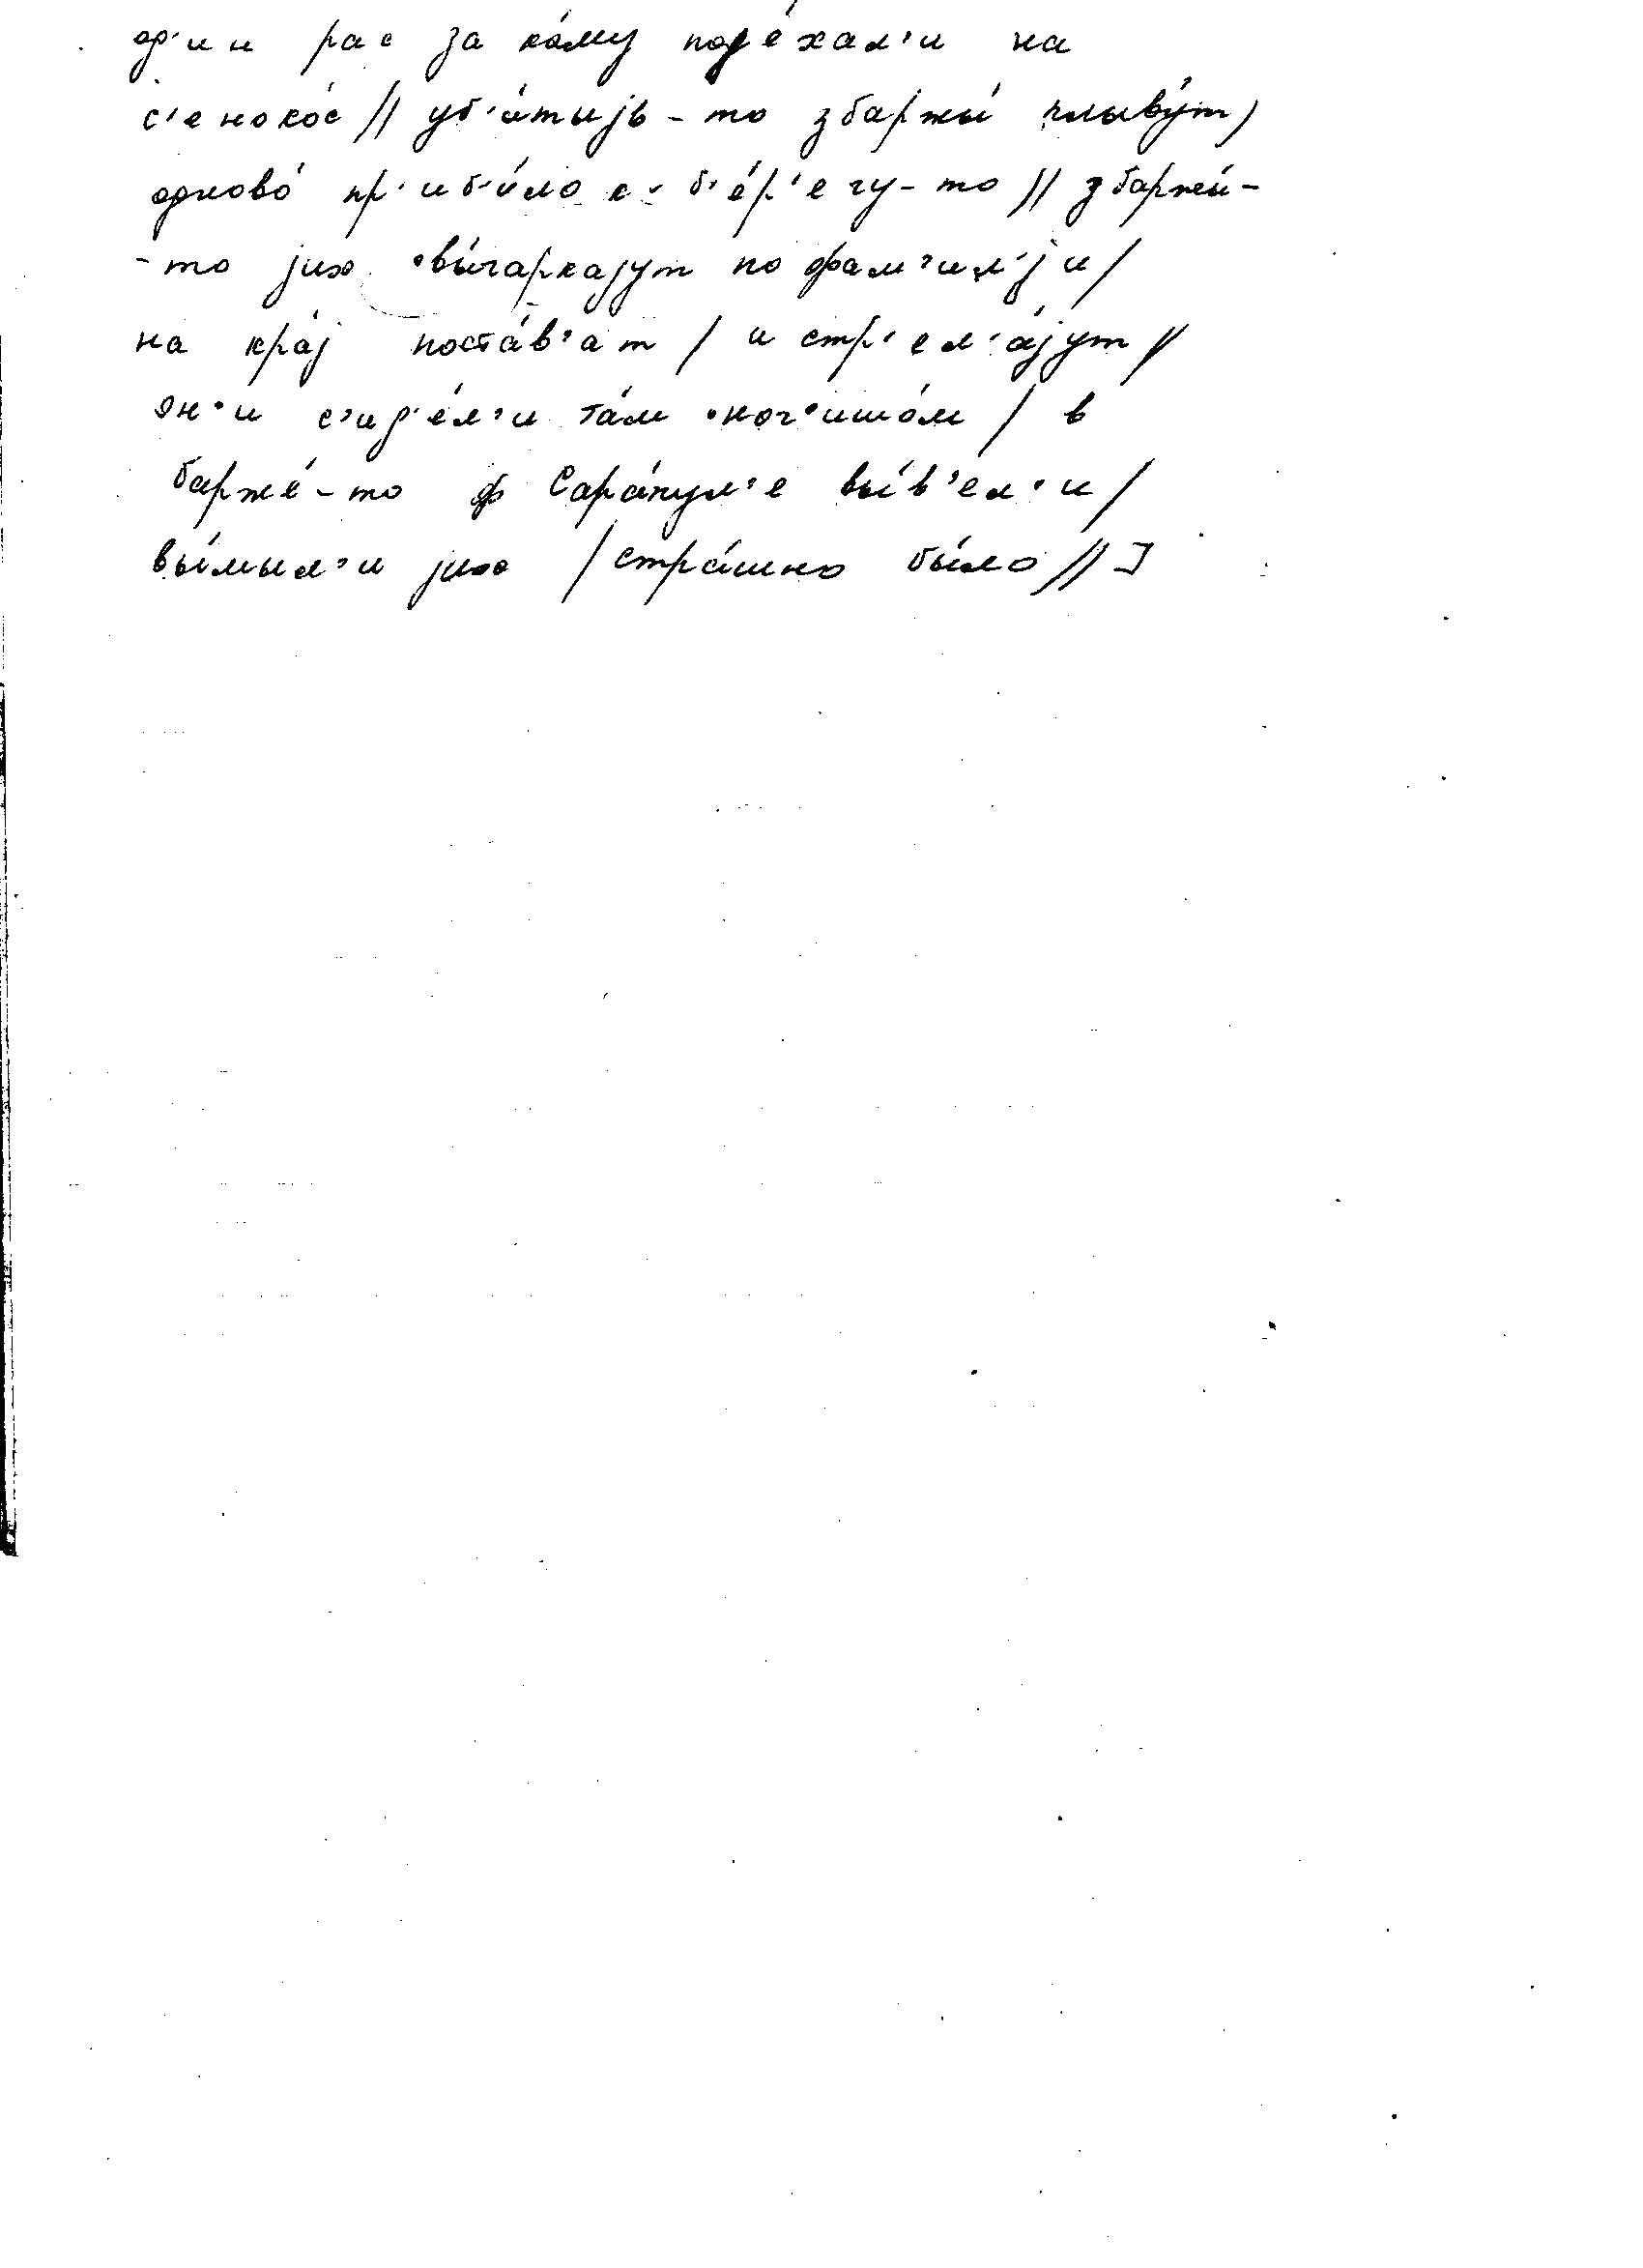 од'ин рас за ка́му пойе́хал'и на
с'енокос // уб'и́тыjь - то збаржы́ плыву́т /
одново́ пр'иб'и́ло к б'е́р'егу - то // збаржы́ -
- то jих вы́гаркаjут по фам'ил'jи /
на кра́j поста́в'ат / и стр'ел'а́jут //
он'и с'ид'е́л'и та́м наг'ишо́м / в
барже́ - то ф Сара́пул'е вы́в'ел'и /
вы́мыл'и jих / стра́шно бы́ло // ]